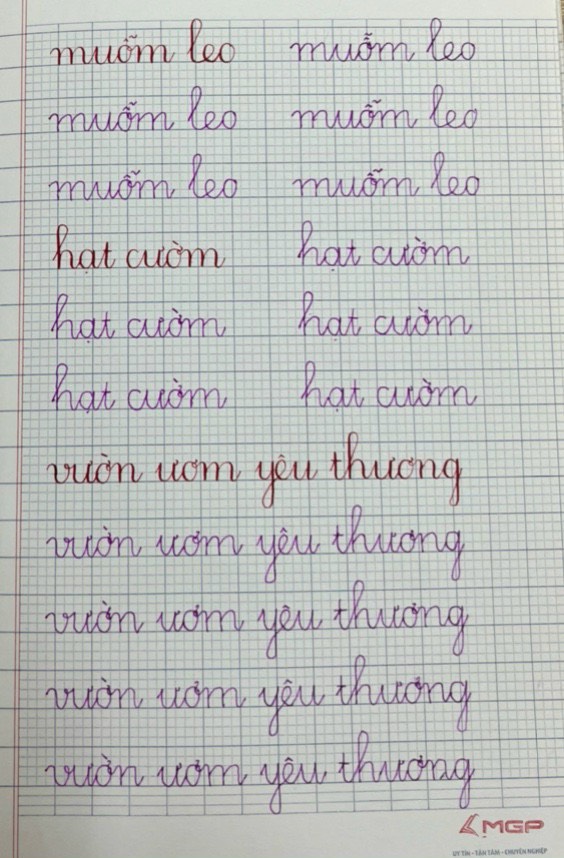 muỗm leo muỗm leo
muỗm leo muỗm leo
muỗm leo muỗm leo
hạt cườm hạt cườm
hạt cườm hạt cườm
hạt cườm hạt cườm
vườn ươm yêu thương
vườn ươm yêu thương
vườn ươm yêu thương
vườn ươm yêu thương
vườn ươm yêu thương
MGP
UY TÍN - TẬN TÂM - CHUYÊN NGHIỆP